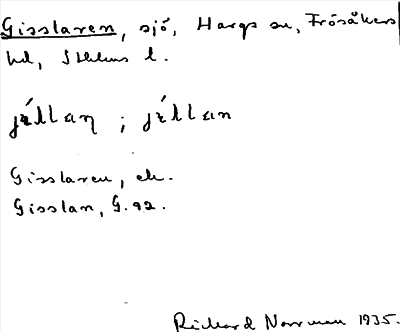 Gisslaren, sjö, Hargs sn, Frösåkers
hd, Sthlms l.
jíllaŋ ; jíllan
Gisslaren, ek.
Gisslan, G.92.
Rickard Norrman 1935.